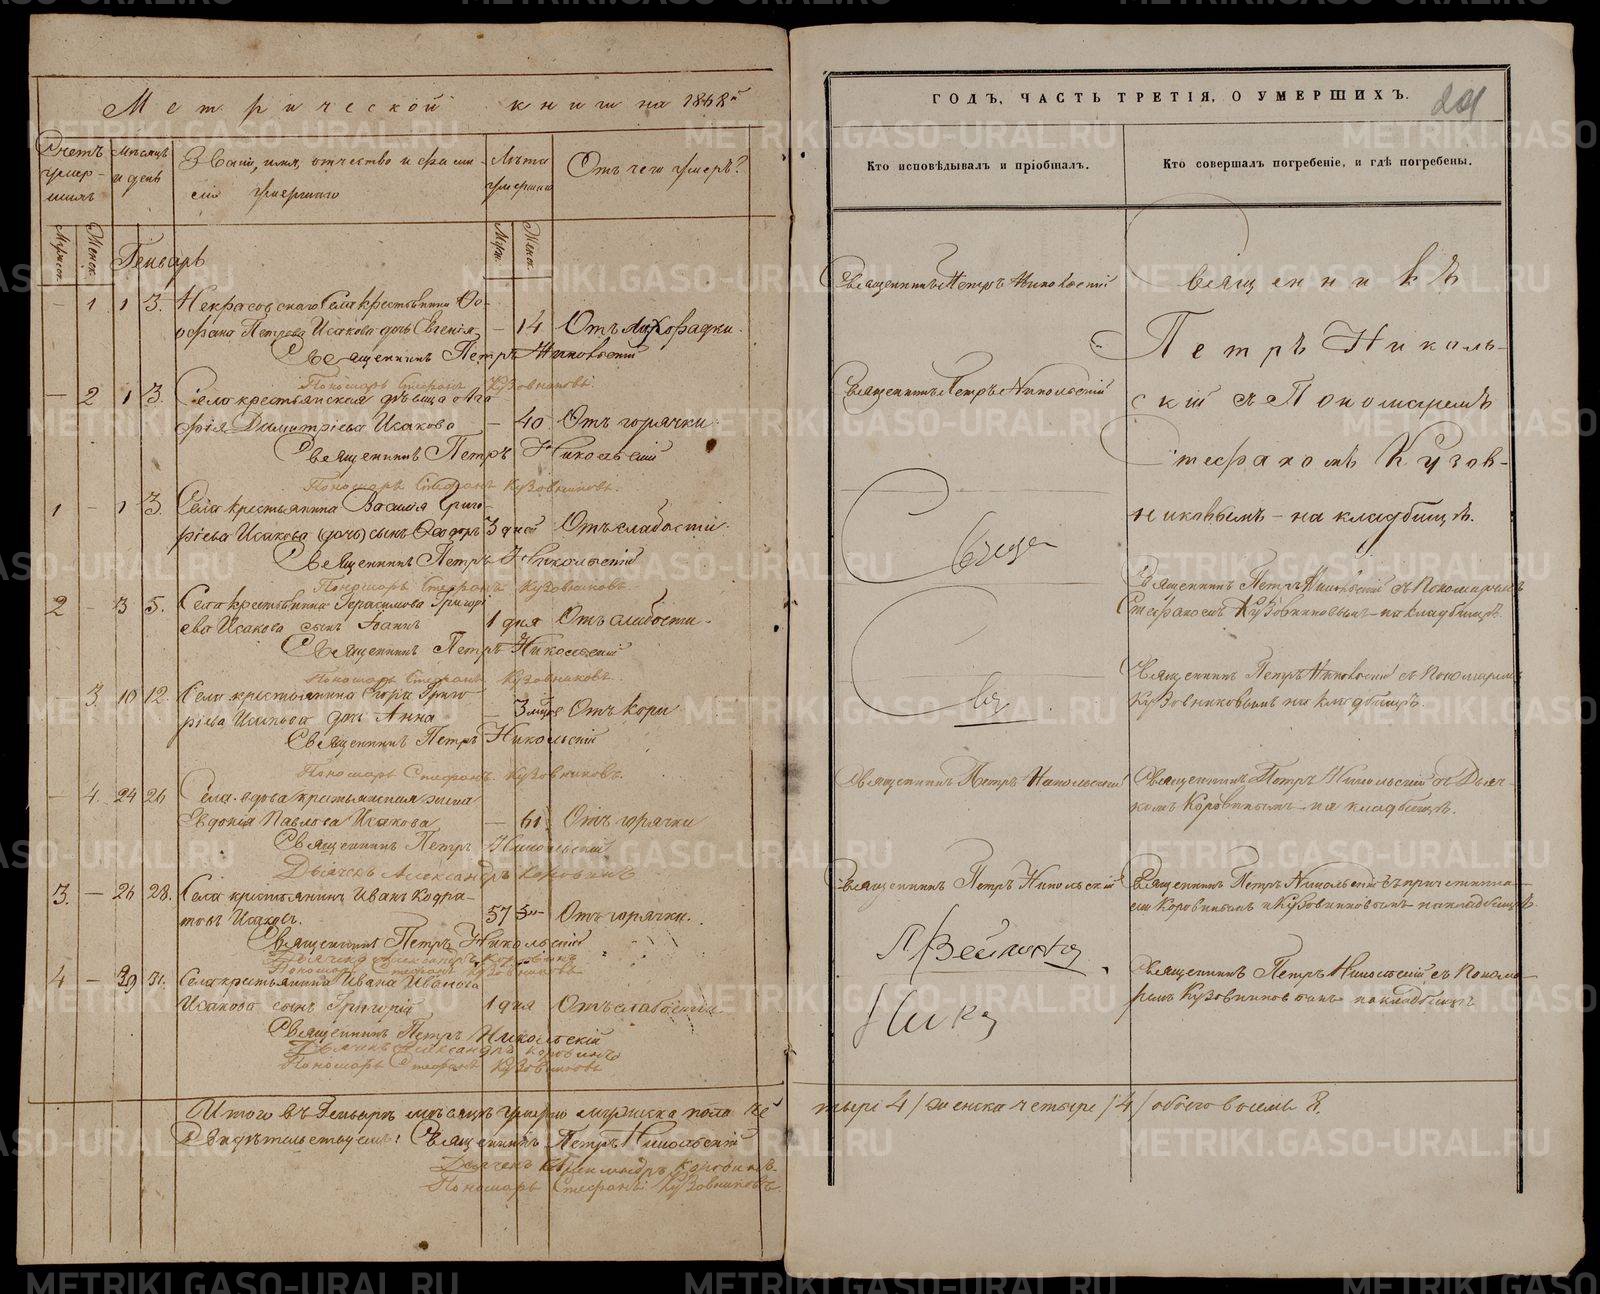 Метрической книги на 1868й
Счетъ умер-шихъ
Мѣсяцъ и день
Званіе, имя, отчество и фами-
лія умершаго
Лѣта умершаго
Отъ чего умеръ?
Мужск.
Женск.
Генварь
Муж.
Женск.
– 1 1 3. Некрасовскаго села крестьянина Фе-
офана Петрова Исакова дочь Евгенія – 14 Отъ лихорадки.
Священникъ Петръ Никольскій
Пономарь Стефанъ Кузовниковъ.
– 2 1 3. Села крестьянская дѣвица
Димитріева Исакова – 40 Отъ горячки
Священникъ Петръ Никольскій
Пономарь Стефанъ Кузовниковъ.
1 – 1 3. Села крестьянина Василія Григо-
рьева Исакова (дочь) сынъ Ѳеодоръ 3 дней Отъ слабости.
Священникъ Петръ Никольскій
Пономарь Стефанъ Кузовниковъ
2 – 3 5. Села крестьянина Герасимова Григорь-
ева Исакова сынъ Іоаннъ 1 дня Отъ слабости.
Священникъ Петръ Никольскій
Пономарь Стефанъ Кузовниковъ.
– 3. 10 12. Села крестьянина Егора Григо-
рьева Исакова дочь Анна – 3 Отъ кори
Священникъ Петръ Никольскій
Пономарь Стефанъ Кузовниковъ.
– 4. 24 26 Села вдова крестьянская жена
Евдокія Павлова Исакова – 61 Отъ горячки
Священникъ Петръ Никольскій
Дьячекъ Александръ Коровинъ
3. – 26 28. Села крестьянинъ Иванъ Кодра-
товъ Исаковъ. 57 Отъ горячки.
Священникъ Петръ Никольскій
Дьячекъ Александръ Коровинъ
Пономарь Стефанъ Кузовниковъ
4 – 29 31. Села крестьянина Ивана Иванова
Исакова сынъ Григорій 1 дня Отъ слабости.
Священникъ Петръ Никольскій
Дьячекъ Александръ Коровинъ
Пономарь Стефанъ Кузовниковъ
Итого въ Генварѣ мѣсяцѣ умерло мужска пола че
Свидѣтельствуемъ: Священникъ Петръ Никольскій
Дьячекъ Александръ Коровинъ
Пономарь Стефанъ Кузовниковъ.
ГОДЪ, ЧАСТЬ ТРЕТІЯ, О УМЕРШИХЪ.
Кто исповѣдывалъ и пріобщалъ.
Кто совершалъ погребеніе, и гдѣ погребены.
Священникъ Петръ Никольскій
Священникъ Петръ Никольскій
Священникъ Петръ Никольскій
Священникъ Петръ Никольскій
Священникъ
Петръ Николь-
скій съ Пономаремъ
Стефаномъ Кузов-
никовымъ – на кладбищѣ.
Священникъ Петръ Никольскій съ Пономаремъ
Стефаномъ Кузовниковымъ на кладбищѣ.
Священникъ Петръ Никольскій съ Пономаремъ
Кузовниковымъ на кладбищѣ.
Священникъ Петръ Никольскій съ Дьяч-
комъ Коровинымъ на кладбищѣ.
Священникъ Петръ Никольскій съ причетника-
ми Коровинымъ и Кузовниковымъ на кладбищѣ
Священникъ Петръ Никольскій съ Понома-
ремъ Кузовниковымъ на кладбищѣ
тыре 4/ женска четыре /4/ обоего восемь 8.
METRIKI.GASO-URAL.RU